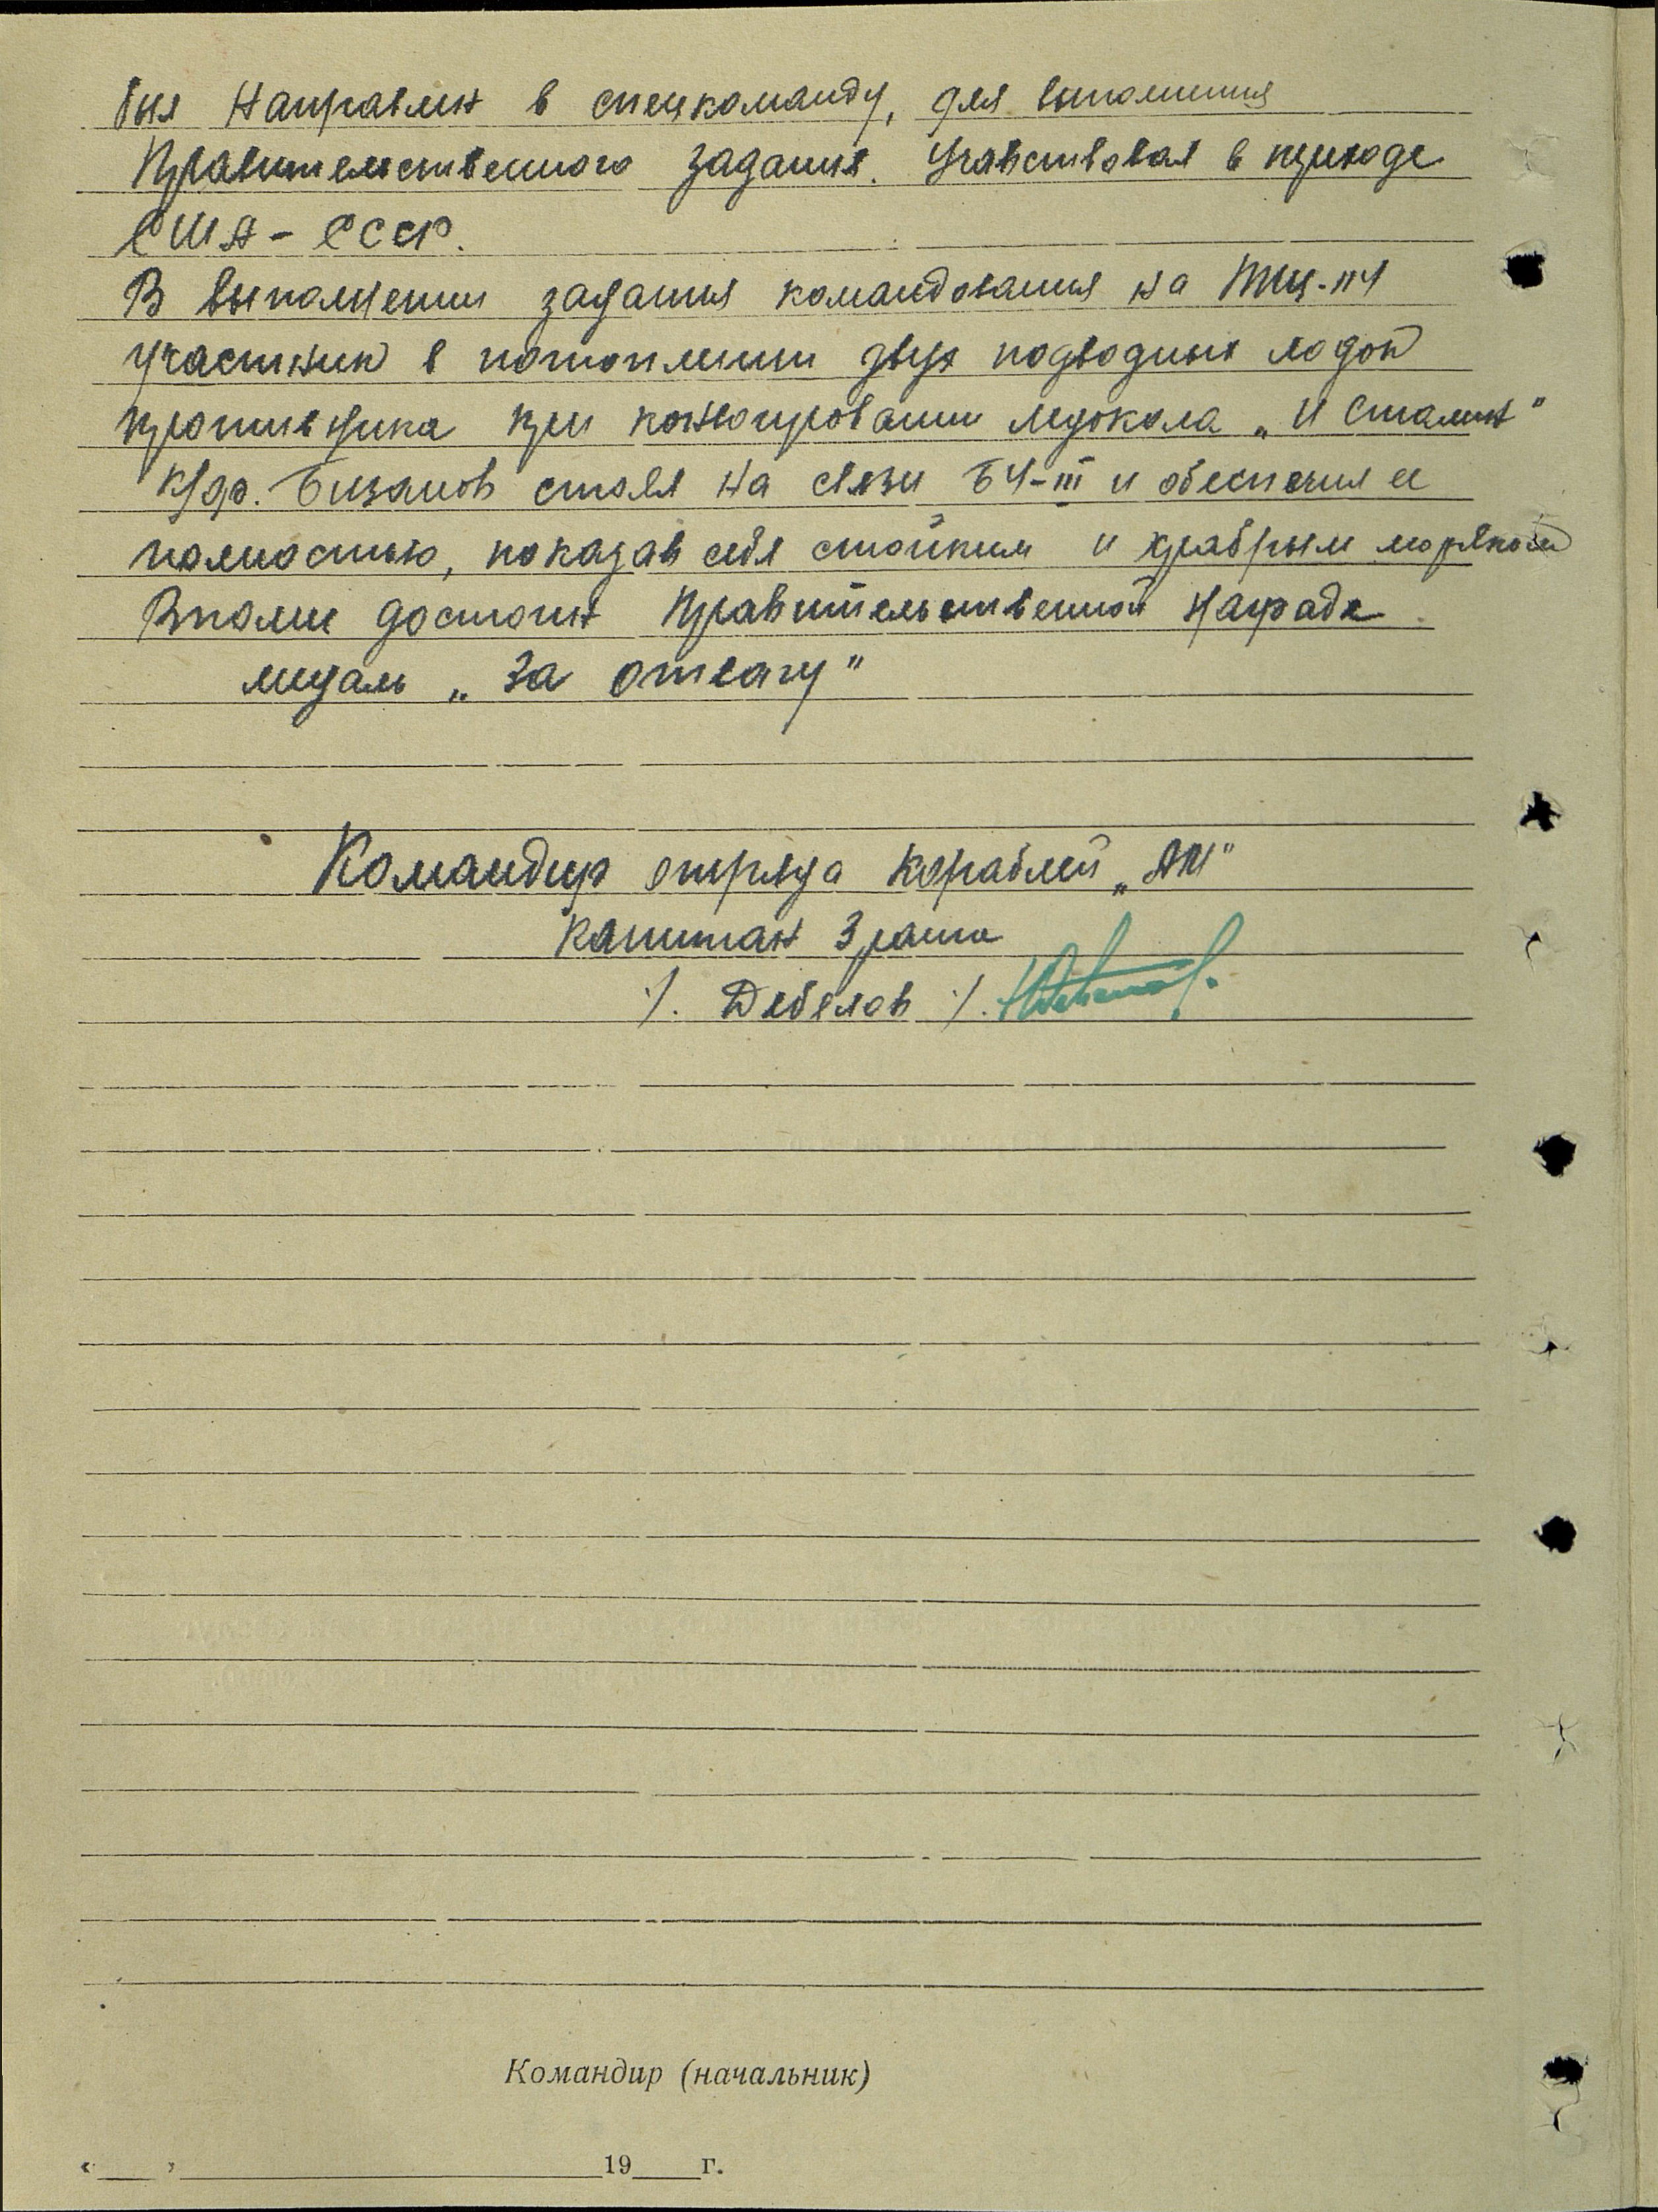 был направлен в спецкоманду, для выполнения
Правительственного задания. Участвовал в переходе
США - СССР.
В выполнении задания командования на ТЩ-114
участник в потоплении двух подводных лодок
противника при конвоировании ледокола „И Сталин"
К/др. Бизанов стоял на связи БЧ-III и обеспечил ее
полностью, показав себя стойким и храбрым моряком
Вполне достоин Правительственной награде
медаль „За отвагу"
Командир отряда кораблей „АМ"
капитан 3 ранга
/. Дебелов /.
Командир (начальник)
« » 19 г.